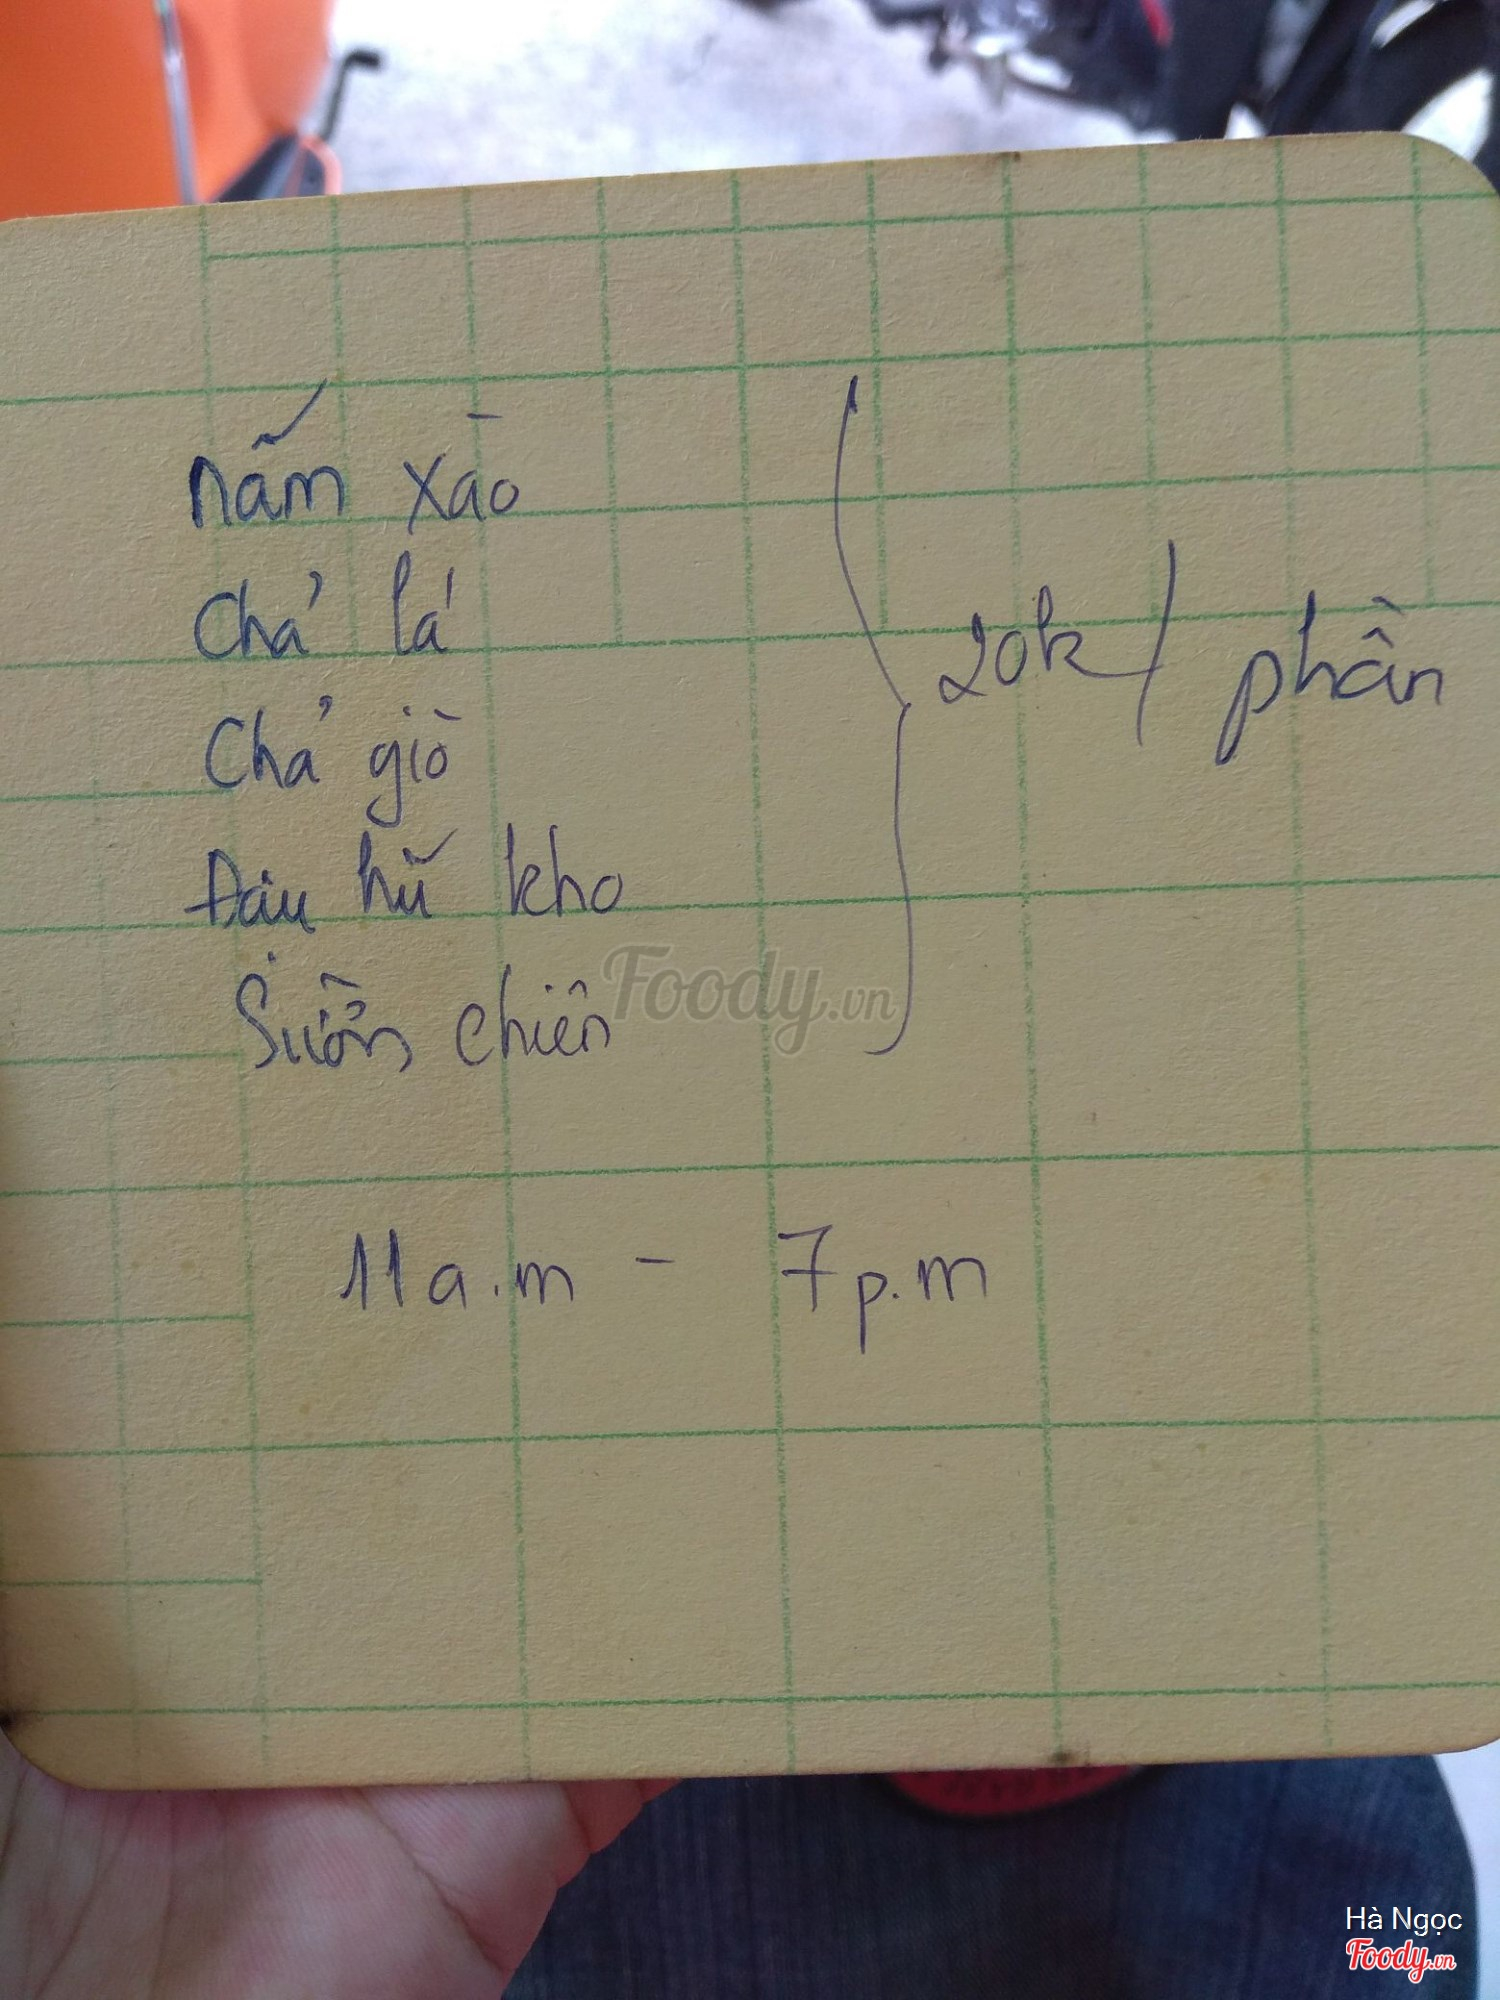 nấm xào
Chả lá
Chả giò
Đậu hũ kho
Sườn chiên
20k / phần
11 a.m - 7 p.m
Foody.vn
Hà Ngọc
Foody.vn